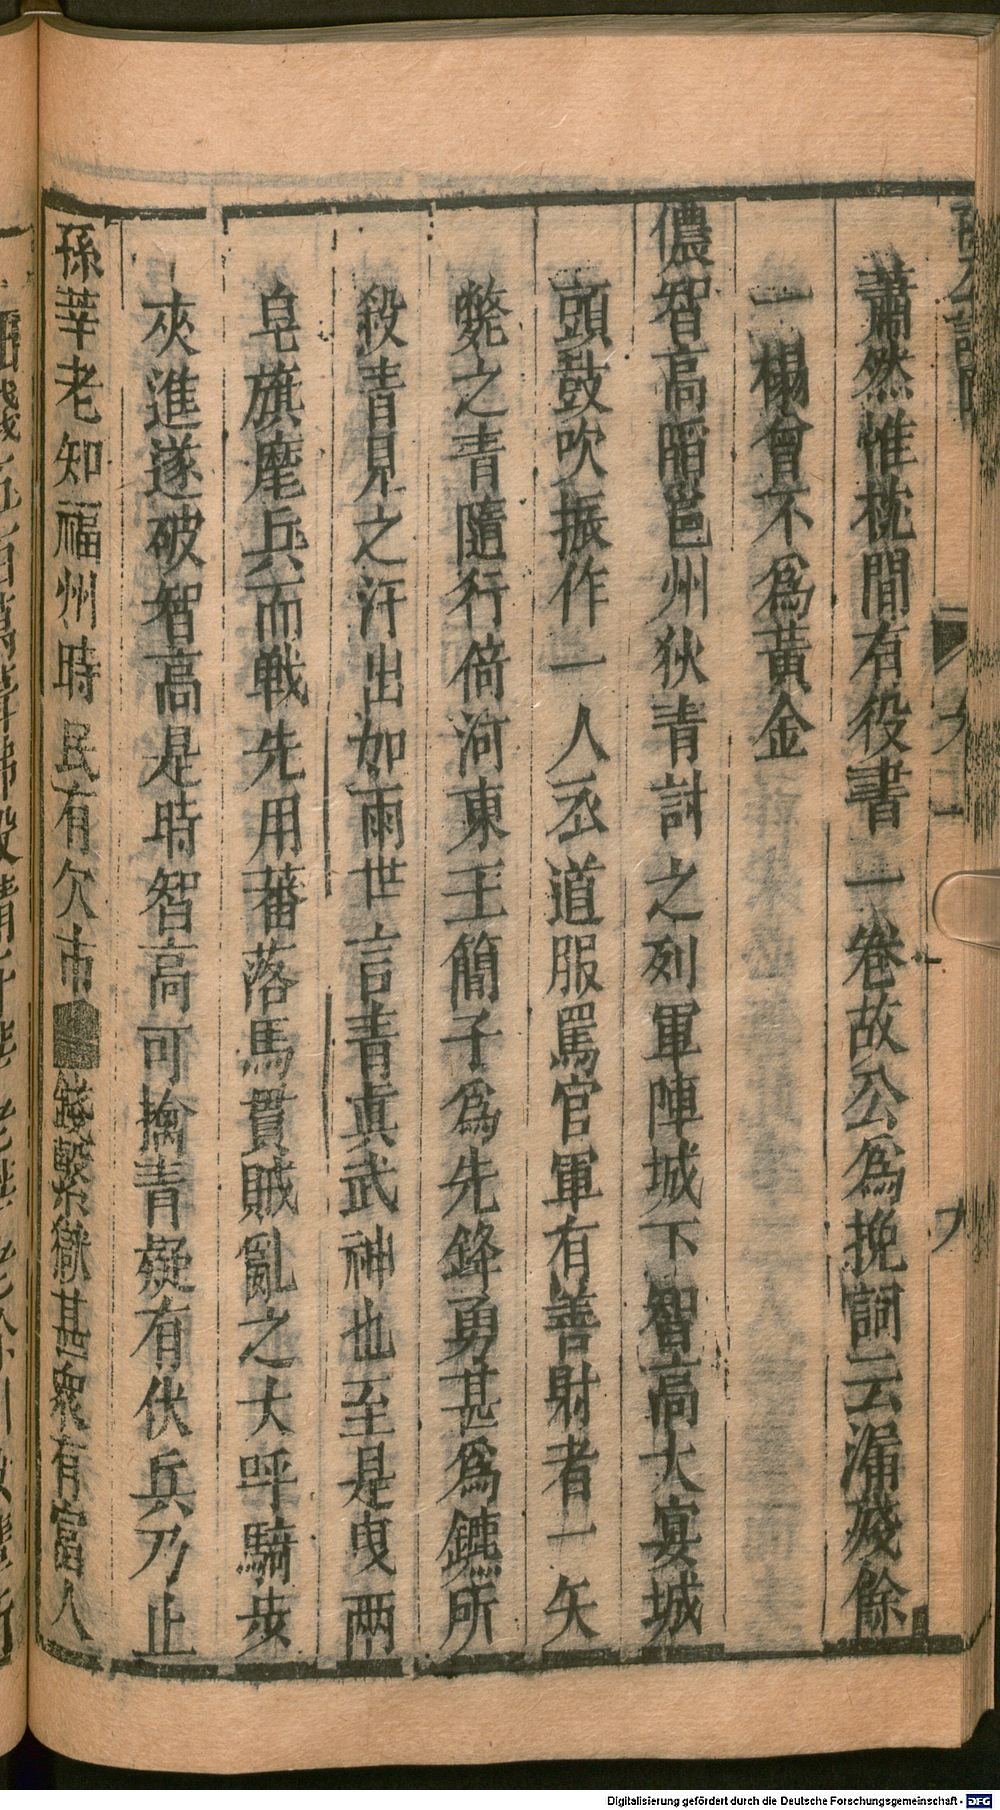 蕭然惟枕間有役書一卷故公爲挽詞云漏殘餘
一榻曾不爲黃金
儂智高䧟邕州狄青討之列軍陣城下智高大宴城
頭鼓吹振作一人衣道服罵官軍有善射者一矢
斃之青隨行倚河東王簡子爲先鋒勇甚爲鏢所
殺青見之汗出如雨世言青眞武神也至是曳两
皂旗麾兵而戰先用蕃落馬貫賊亂之大呼騎步
夾進遂破智高是時智高可擒青疑有伏兵乃止
孫莘老知福州時民有欠市錢繫獄甚衆有富人
Digitalisierung gefördert durch die Deutsche Forschungsgemeinschaft - DFG